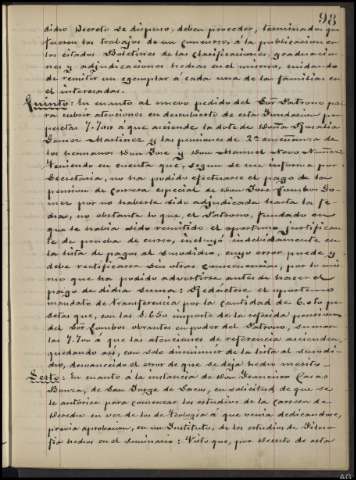 98
dicho Decreto se dispuso, deben proceder, terminados que
fueron los trabajos de un Concurso, á la publicacion en
los citados Boletines de las clasificaciones, graduacio-
nes y adjudicaciones hechas en el mismo, cuidando
de remitir un ejemplar á cada una de las familias en
el interesadas.
Quinto: En cuanto al nuevo pedido del Sor Patrono pa-
ra cubrir atenciones en descubierto de esta Fundacion por
pesetas 7.700 á que asciende la dote de Doña
Ramos Martinez y la pensiones de 2ª enseñanza de
los hermanos Don José y Don Manuel Novo Nuñez.
Teniendo en cuenta que, segun se me informa por
Secretaría, no ha podido efectuarse el pago de la
pension de Carrera especial de Don José
por no haberla sido adjudicada hasta la fe-
cha, no obstante lo que, el Patrono, fundado en
que le habia sido remitido el oportuno justifican-
te de prueba de curso, incluyó indebidamente en
la lista de pagos al susodicho, cuyo error puede y
debe rectificarse sin otras consecuencias, por lo mis-
mo que ha podido advertirse antes de hacer el
pago de dicha suma: Dediárese el oportuno
mandato de transferencia por la cantidad de 6.050 pe-
setas que, con las 1.650 importe de la referida pension
del Sor obrantes en poder del Patrono, suman
las 7.700 á que las atenciones de referencia ascienden,
quedando así, con solo disminuir de la lista al susodi-
cho, desvanecido el error de que se deja hecho mérito.
Sesto: En cuanto á la instancia de Don Francisco Casas
de San Jorge de Sacos, en solicitud de que se
le autorice para comenzar los estudios de la Carrera de
Derecho en vez de los de Teología á que venia dedicandose,
previa aprobacion, en un Instituto, de los estudios de Filoso-
fia hechos en el Seminario: Visto que, por Decreto de esta